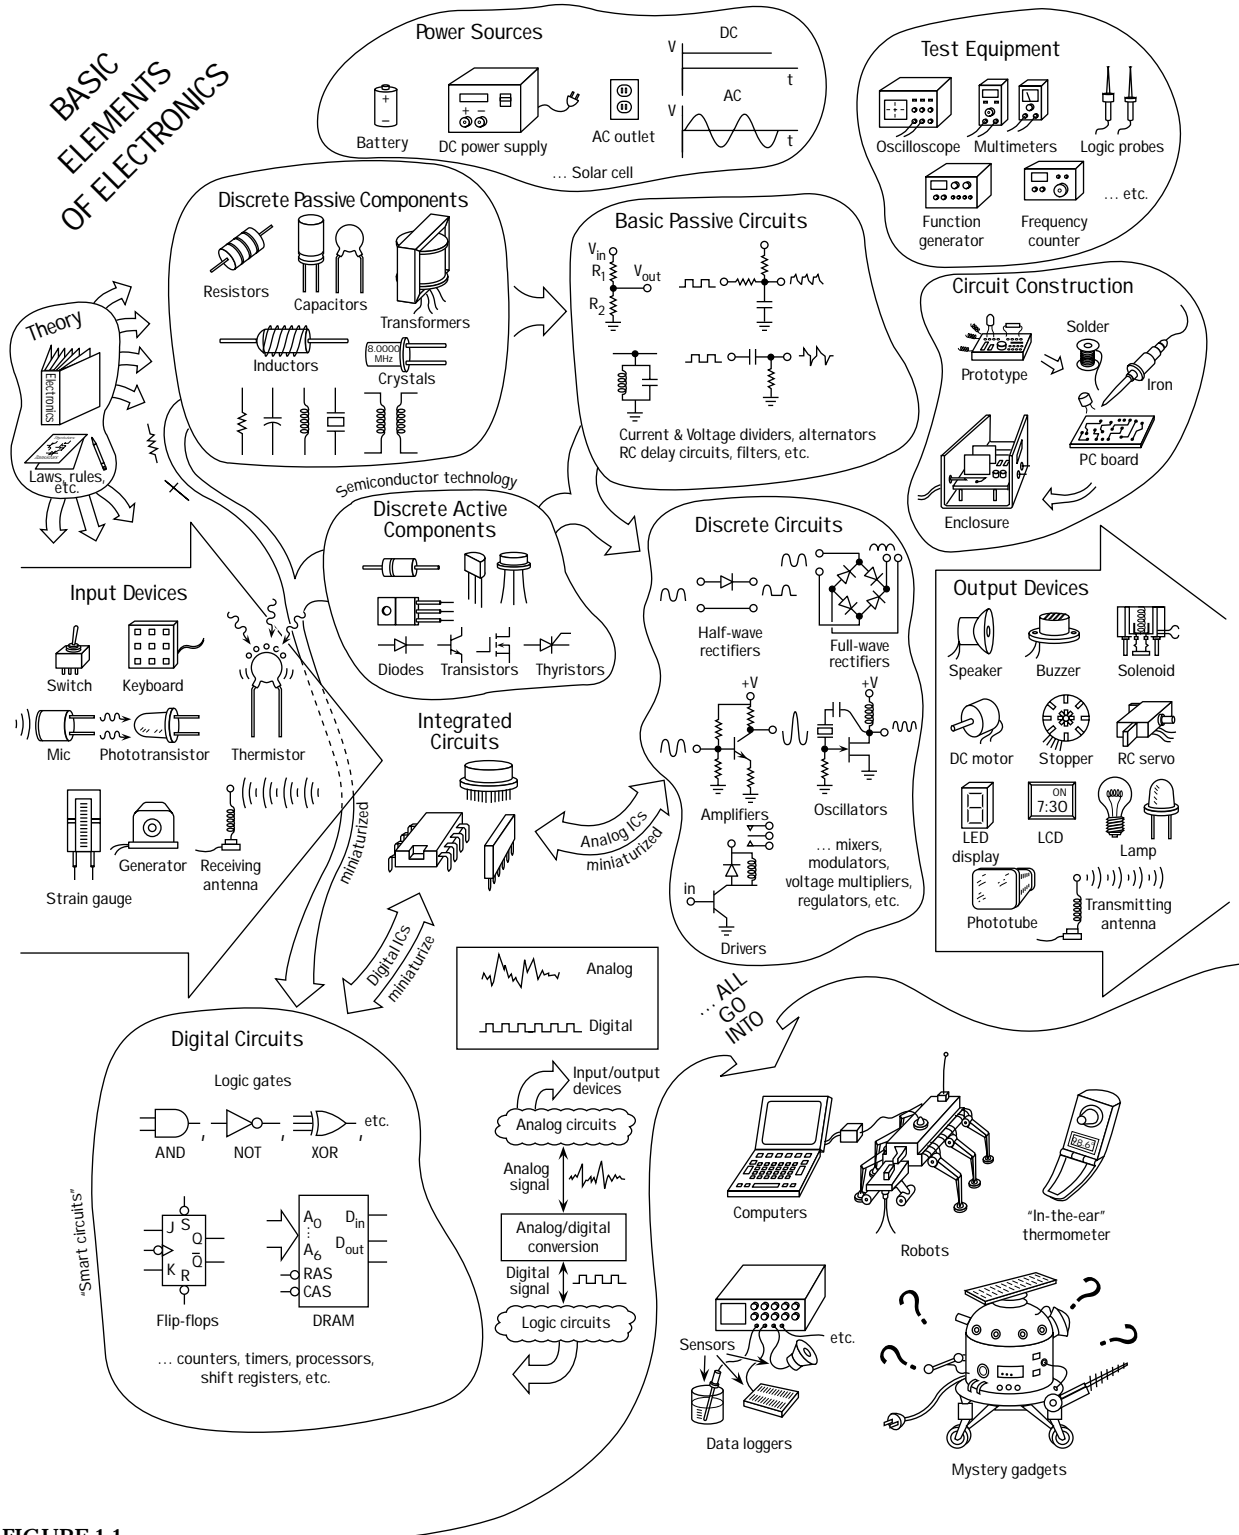 BASIC
ELEMENTS
OF ELECTRONICS
Power Sources
Battery
DC power supply
AC outlet
DC
V
t
AC
V
t
... Solar cell
Test Equipment
Oscilloscope
Multimeters
Logic probes
Function
generator
Frequency
counter
... etc.
Discrete Passive Components
Resistors
Capacitors
Transformers
Inductors
8.0000
MHz
Crystals
Theory
Electronics
Laws, rules,
etc.
Basic Passive Circuits
Vin
R1
Vout
R2
Current & Voltage dividers, alternators
RC delay circuits, filters, etc.
Circuit Construction
Prototype
Solder
Iron
PC board
Enclosure
Semiconductor technology
Discrete Active
Components
Diodes
Transistors
Thyristors
Input Devices
Switch
Keyboard
Mic
Phototransistor
Thermistor
Strain gauge
Generator
Receiving
antenna
Integrated
Circuits
miniaturized
Analog ICs
miniaturized
Digital ICs
miniaturize
Discrete Circuits
Half-wave
rectifiers
Full-wave
rectifiers
+V
+V
Amplifiers
Oscillators
in
Drivers
... mixers,
modulators,
voltage multipliers,
regulators, etc.
Output Devices
Speaker
Buzzer
Solenoid
DC motor
Stopper
RC servo
LED
display
ON
7:30
LCD
Lamp
Phototube
Transmitting
antenna
Analog
Digital
... ALL
GO
INTO
Digital Circuits
Logic gates
AND
,
NOT
,
XOR
,
etc.
"Smart circuits"
J
S
Q
K
R
Q̅
Flip-flops
A0
⋮
A6
RAS
CAS
Din
Dout
DRAM
... counters, timers, processors,
shift registers, etc.
Input/output
devices
Analog circuits
Analog
signal
Analog/digital
conversion
Digital
signal
Logic circuits
Computers
Robots
98.6
"In-the-ear"
thermometer
Sensors
etc.
Data loggers
? ? ? ?
Mystery gadgets
FIGURE 1.1